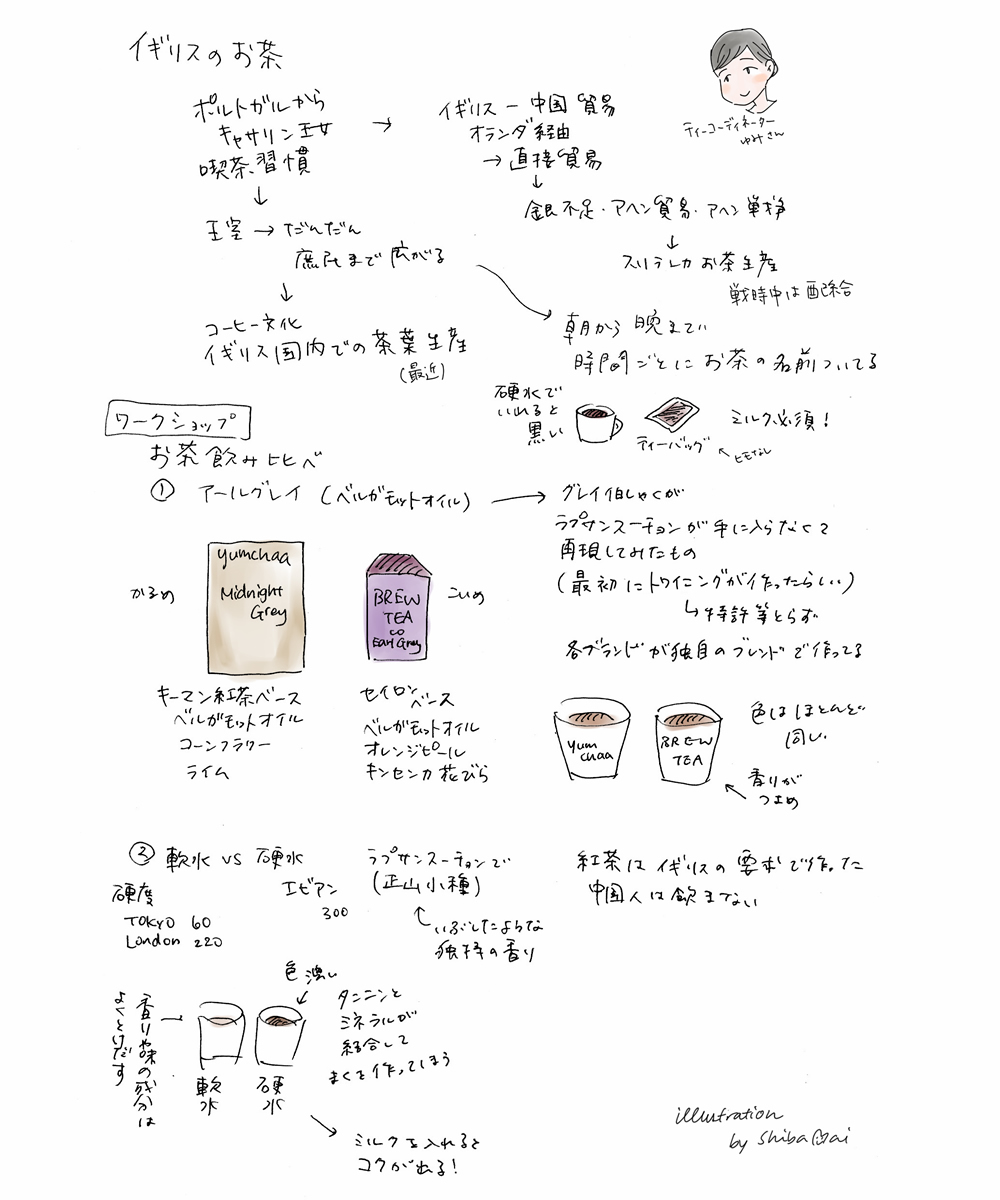 イギリスのお茶
ティーコーディネーター
ゆみさん
ポルトガルから
キャサリン王女
喫茶習慣
→
イギリス ー 中国 貿易
オランダ経由
→ 直接貿易
↓
銀不足・アヘン貿易・アヘン戦争
↓
スリランカ お茶生産
戦時中は配給
↓
王室 → だんだん
庶民まで広がる
↓
コーヒー文化
イギリス国内での茶葉生産
(最近)
朝から晩まで
時間ごとにお茶の名前ついてる
硬水で
いれると
黒い
ティーバッグ
←ヒモなし
ミルク必須!
ワークショップ
お茶飲み比べ
① アールグレイ (ベルガモットオイル) →
グレイ伯しゃくが
ラプサンスーチョンが手に入らなくて
再現してみたもの
(最初にトワイニングが作ったらしい)
↳ 特許等とらず
各ブランドが独自のブレンドで作ってる
かるめ
yumchaa
Midnight
Grey
キーマン紅茶ベース
ベルガモットオイル
コーンフラワー
ライム
こいめ
BREW
TEA
co
Earl Grey
セイロン
ベース
ベルガモットオイル
オレンジピール
キンセンカ花びら
Yum
chaa
BREW
TEA
色はほとんど
同じ
香りが
つよめ
② 軟水 VS 硬水
硬度
TOKYO 60
London 220
エビアン
300
ラプサンスーチョンで
(正山小種)
↑
いぶしたような
独特の香り
紅茶はイギリスの要求で作った
中国人は飲まない
香りや味の成分は
よくとけだす
軟水
色濃い
硬水
タンニンと
ミネラルが
結合して
まくを作ってしまう
ミルクを入れると
コクが出る!
illustration
by Shiba Mai